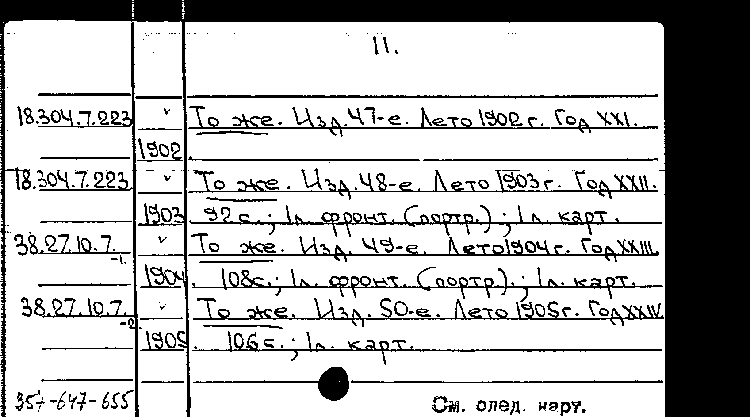 11.
18.304.7.223 ᵛ То же. Изд. 47-е. Лето 1902 г. Год XXI.
1902
18.304.7.223 ᵛ То же. Изд. 48-е. Лето 1903 г. Год XXII.
1903 92 с.; 1 л. фронт. (портр.); 1 л. карт.
38.27.10.7. ᵛ То же. Изд. 49-е. Лето 1904 г. Год XXIII.
-1.
1904. 108 с.; 1 л. фронт. (портр.).; 1 л. карт.
38.27.10.7. ᵛ То же. Изд. 50-е. Лето 1905 г. Год XXIV.
-2
1905. 106 с.; 1 л. карт.
357-647-655 См. след. карт.